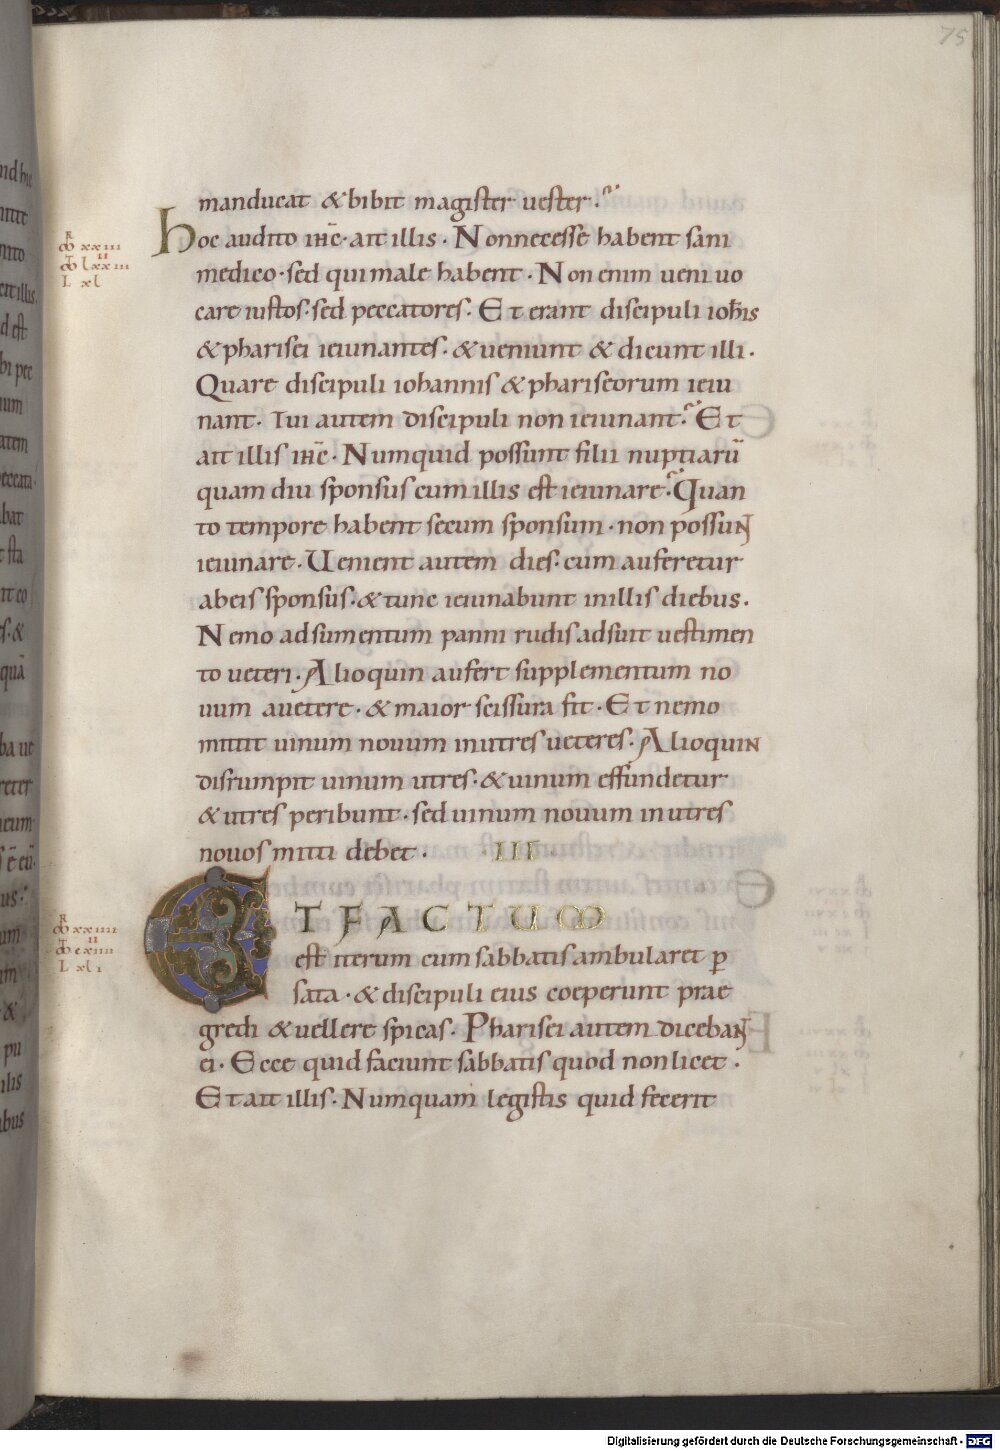 75
manducat & bibit magister uester.
hoc audito ihc· ait illis · Nonnecesse habent sani
medico · sed qui male habent · Non enim ueni uo
care iustos· sed peccatores · Et erant discipuli iohis
& pharisei ieiunantes · & ueniunt & dicunt illi ·
Quare discipuli iohannis & phariseorum ieiu
nant · Tui autem discipuli non ieiunant · Et
ait illis ihc · Numquid possunt filii nuptiarū
quam diu sponsus cum illis est ieiunare · Quan
to tempore habent secum sponsum · non possunt
ieiunare · Uenient autem dies · cum auferetur
abeis sponsus · & tunc ieiunabunt inillis diebus ·
Nemo adsumentum panni rudis adsuit uestimen
to ueteri · Alioquin aufert supplementum no
uum auetere · & maior scissura fit · Et nemo
mittit uinum nouum inutres ueteres · Alioquin
disrumpit uinum utres · & uinum effundetur
& utres peribunt · sed uinum nouum inutres
nouos mitti debet · · III ·
ET FACTUM
est iterum cum sabbatis ambularet p
sata · & discipuli eius coeperunt prae
gredi & uellere spicas · Pharisei autem dicebant
ei · Ecce quid faciunt sabbatis quod non licet ·
Et ait illis · Numquam legistis quid fecerit
R
xxiii
lxxiii
L xl
R
xxiiii
cxiiii
L xli
Digitalisierung gefördert durch die Deutsche Forschungsgemeinschaft - DFG